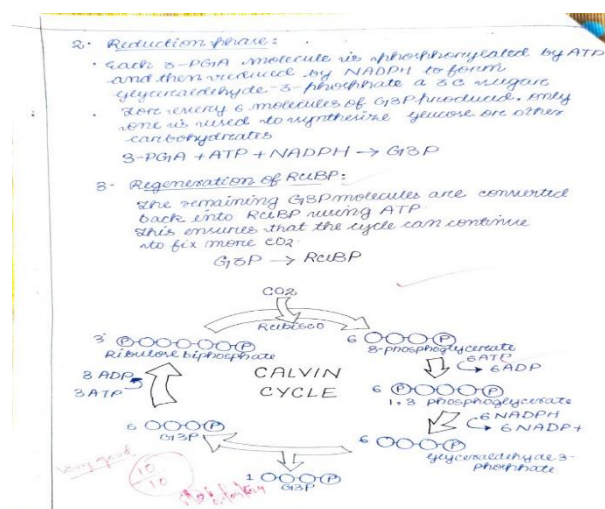 2. Reduction phase:
· Each 3-PGA molecule is phosphorylated by ATP
and then reduced by NADPH to form
glyceraldehyde-3-phosphate a 3C sugar.
· For every 6 molecules of G3P produced. Only
one is used to synthesize glucose or other
carbohydrates
3-PGA + ATP + NADPH → G3P
3. Regeneration of RuBP:
The remaining G3P molecules are converted
back into RuBP using ATP.
This ensures that the cycle can continue
to fix more CO2.
G3P → RuBP
CO2
Rubisco
3 P P
Ribulose biphosphate
6 P
3-phosphoglycerate
6ATP
6ADP
3 ADP
3 ATP
CALVIN
CYCLE
6 P P
1,3 phosphoglycerate
6 NADPH
6 NADP+
5 P
G3P
6 P
glyceraldehyde 3-
phosphate
1 P
G3P
Very good
10
10